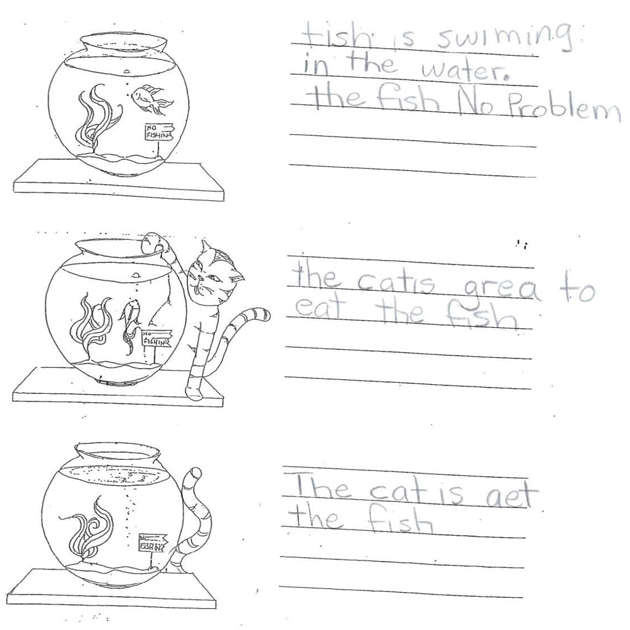 NO
FISHING
fish is swiming.
in the water.
the fish No Problem
NO
FISHING
the cat is grea to
eat the fish
NO
FISHING
The cat is aet
the fish